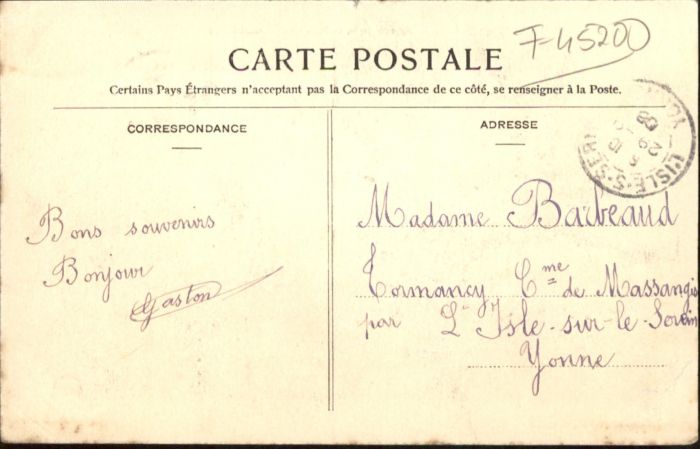 F-45200
CARTE POSTALE
Certains Pays Étrangers n'acceptant pas la Correspondance de ce côté, se renseigner à la Poste.
CORRESPONDANCE
ADRESSE
L'ISLE-S-SER
29
08
Bons souvenirs
Bonjour
Gaston
Madame Barbeaud
Tormancy Cme de Massangis
par L'Isle-sur-le-Serein
Yonne